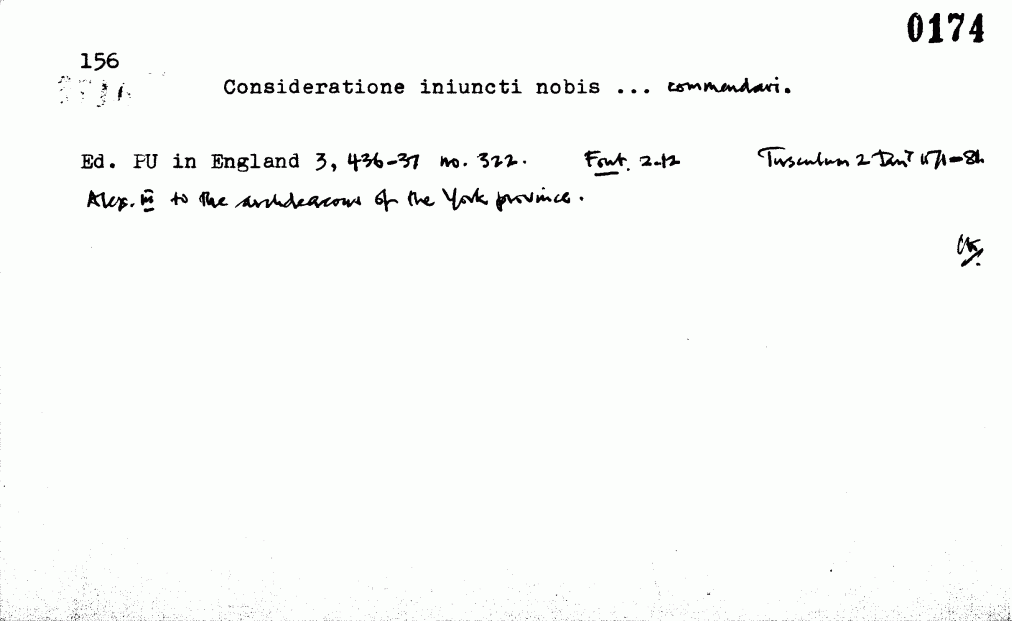 0174
156
Consideratione iniuncti nobis ... commendari.
Ed. PU in England 3, 436-37 no. 322. Font. 2.12 Tusculum 2 Jan.
Alex. iii to the archdeacons of the York province.